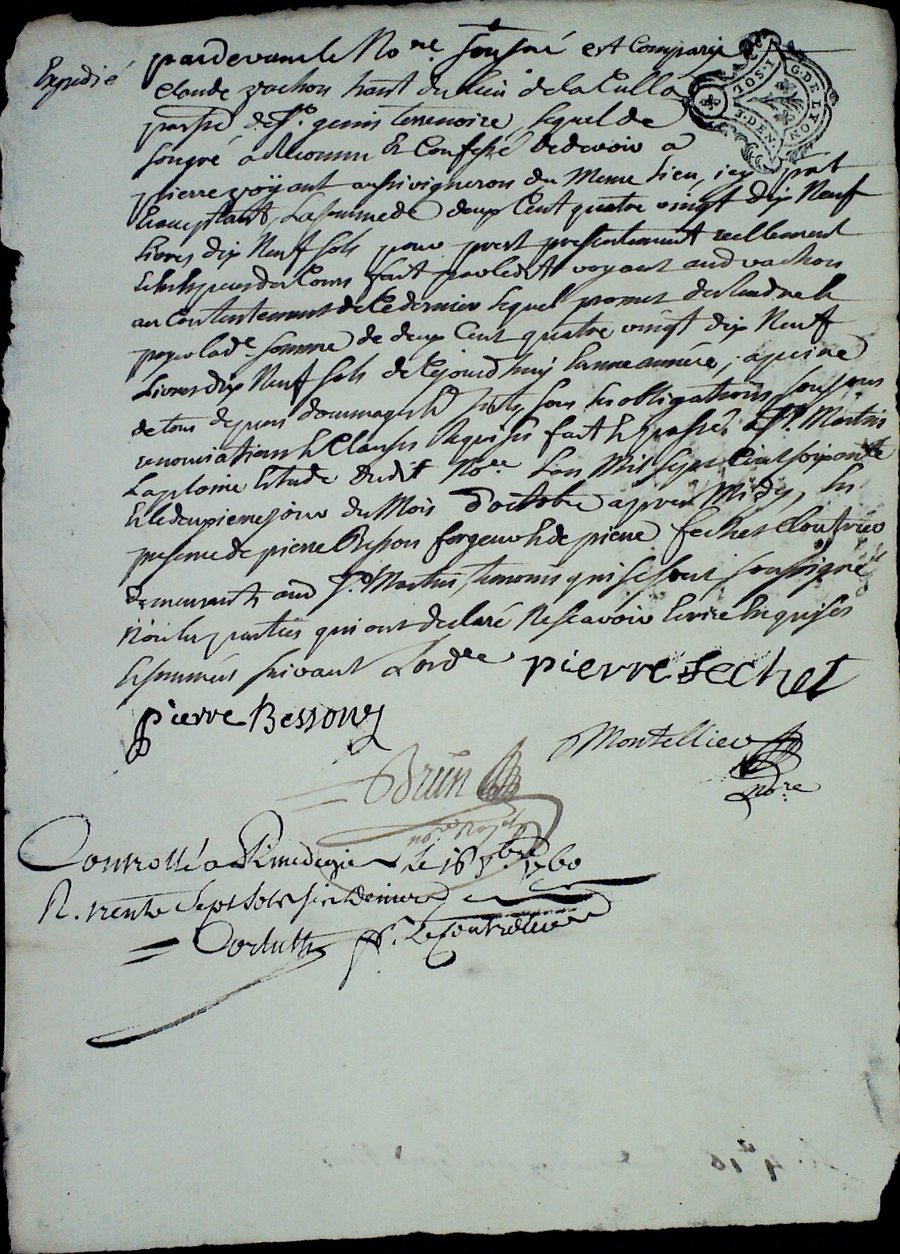 Expedié
pardevant le No.re soussné est Comparu
Claude vachon habt du lieu de la Culla
parsse de St. genis terrenoire, lequel de
son gré a Reconnu Et Confessé de devoir a
pierre voÿant aussi vigneron du Meme lieu, icy pnt
Et acceptant, La somme de deux Cent quatre vingt dix Neuf
Livres dix Neuf sols pour prest presentement reellement
fait par led.t voyant aud. vachon
au Contentement de Ce dernier lequel promet de rendre et
payer lad.e somme de deux Cent quatre vingt dix Neuf
Livres dix Neuf sols de Cejourd'huy En une année, a peine
de tous depens dommages Et sous les obligations soumons
renonciations et Clauses Requises fait et passé a St. Martin
La plaine Etude dudit No.re L'an Mil sept Cent soixante
Et le deuxieme jour du Mois d'octobre apres Midy, En
presence de pierre Besson forgeur et de pierre fechet Cloutier
demeurants aud St. Martin temoins qui se sont soussignés
Non les parties qui ont declaré Ne scavoir Ecrire Enquises
Et sommés suivant L'ordce pierre Fechet
pierre Besson
Montellier
no.re
Brun
no.re Royal
Controllé a Rivedegier Le 16 8bre 1760
R. trente Sept Sols six Deniers
Le Controlleur
G. DE LYON
2 S. DEN.